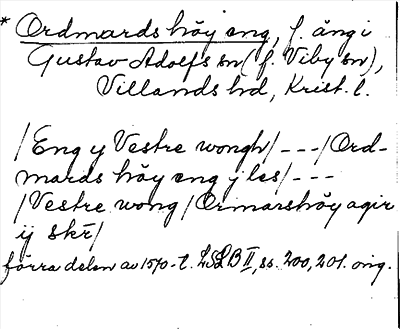 * Ordmards höy eng, f. äng i
Gustav Adolfs sn (f. Viby sn),
Villands hd, Krist. l.
/Eng y Vestre wongh/ --- /Ord-
mards höy eng y les/ ---
/Vestre wong/ Ormarshöy agir
ij skr̄/
förra delen av 1570-t. LSLB II, ss. 200, 201. orig.